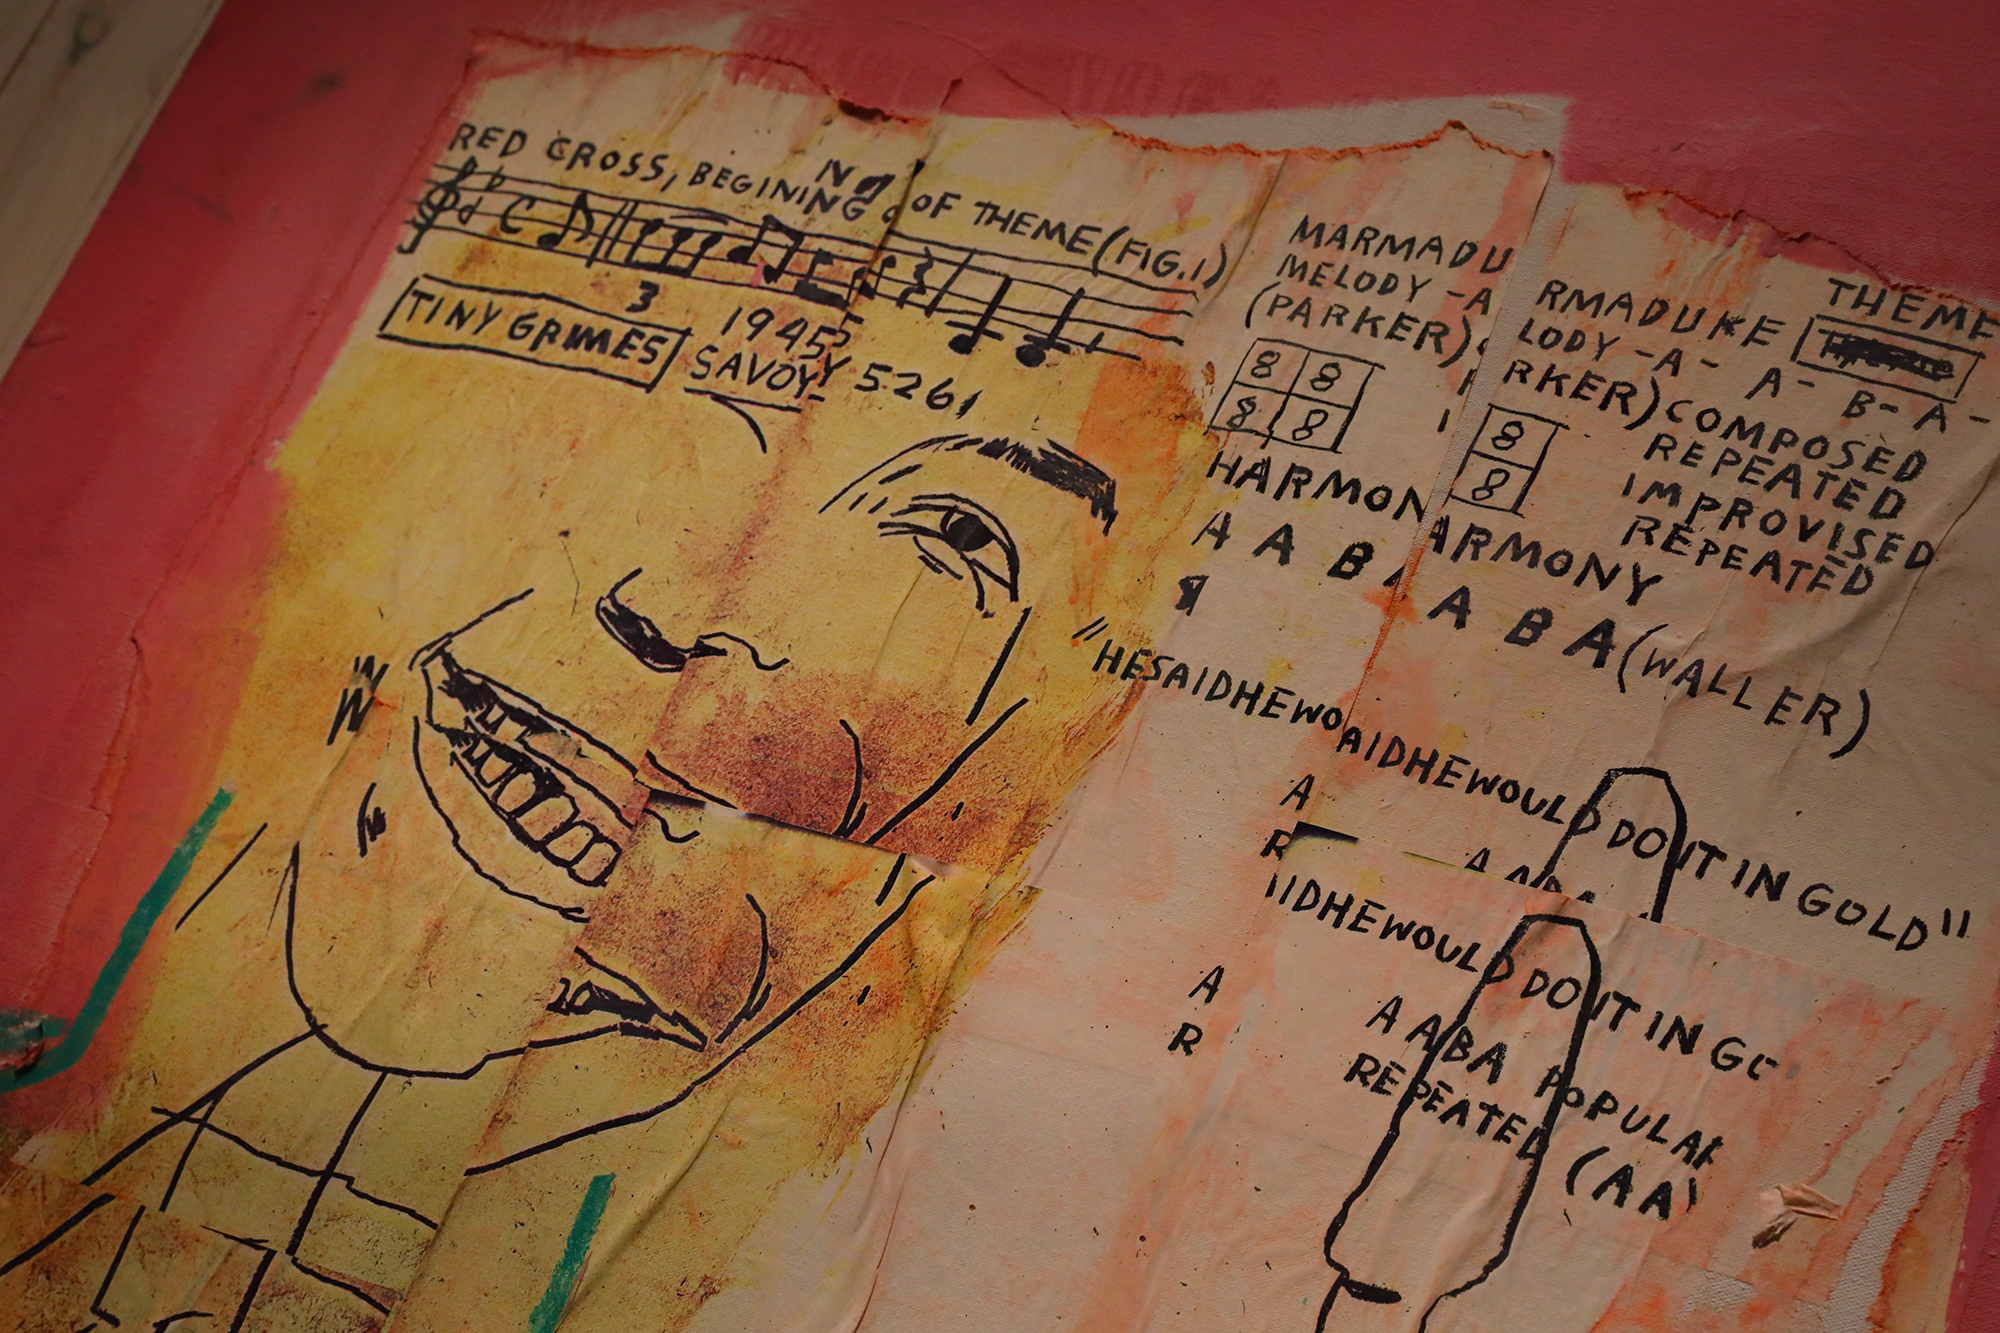 RED CROSS, BEGINING OF THEME (FIG.1)
N
3
TINY GRIMES
1945
SAVOY 5261
MARMADU
MELODY -A
(PARKER)
8 8
8 8
HARMON
A A B
THEME
RMADUKE
LODY -A- A- B- A-
RKER) COMPOSED
REPEATED
IMPROVISED
REPEATED
8
8
ARMONY
A B A (WALLER)
"HESAIDHEWO
AIDHEWOULD DO IT IN GOLD"
A
R
IDHEWOULD DO IT IN GC
A
R
A A B A POPULAR
REPEATED (AA)